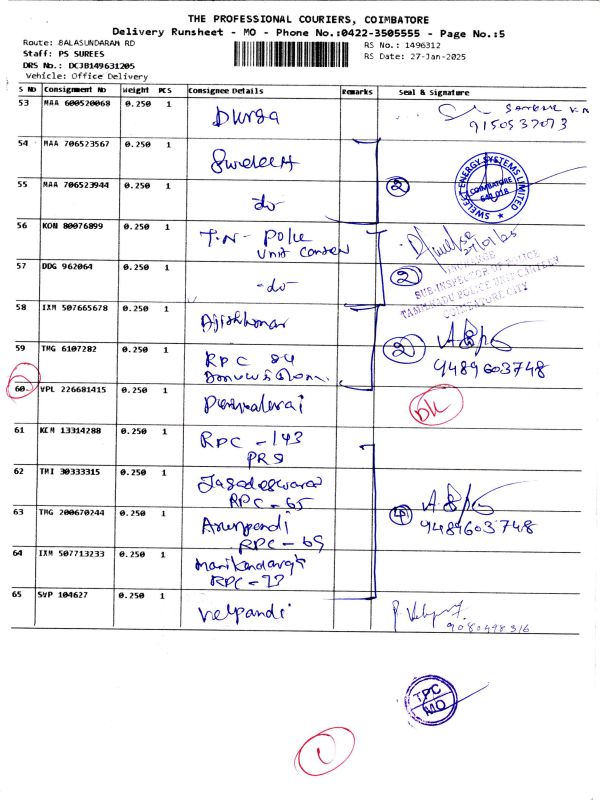 THE PROFESSIONAL COURIERS, COIMBATORE
Delivery Runsheet - MO - Phone No.:0422-3505555 - Page No.:5
Route: BALASUNDARAM RD
RS No.: 1496312
Staff: PS SUREES
RS Date: 27-Jan-2025
DRS No.: DCJB149631205
Vehicle: Office Delivery
S No Consignment No Weight PCS Consignee Details Remarks Seal & Signature
53 MAA 600520068 0.250 1 Durga
9150537073
54 MAA 706523567 0.250 1 Swelect
55 MAA 706523944 0.250 1 -do- 2
SWELECT ENERGY SYSTEMS LIMITED
COIMBATORE
641 018
56 KON 80076899 0.250 1 T.N- Police
Unit Canteen
27/01/25
57 DDG 962064 0.250 1 -do- 2
SUB INSPECTOR OF POLICE
TAMILNADU POLICE UNIT CANTEEN
COIMBATORE CITY
58 IXM 507665678 0.250 1 Ajishkumar
59 TMG 6107282 0.250 1 RPC 84 2
9489603748
60 VPL 226681415 0.250 1
61 KCM 13314288 0.250 1 RPC - 143
PRS
62 TMI 30333315 0.250 1 Jagadeswaran
RPC - 65
63 TMG 200670244 0.250 1 Arunpandi 4
RPC - 69
9489603748
64 IXM 507713233 0.250 1 Manikandaraj
RPC - 77
65 SVP 104627 0.250 1 Velpandi
9080498316
TPC
MO
1